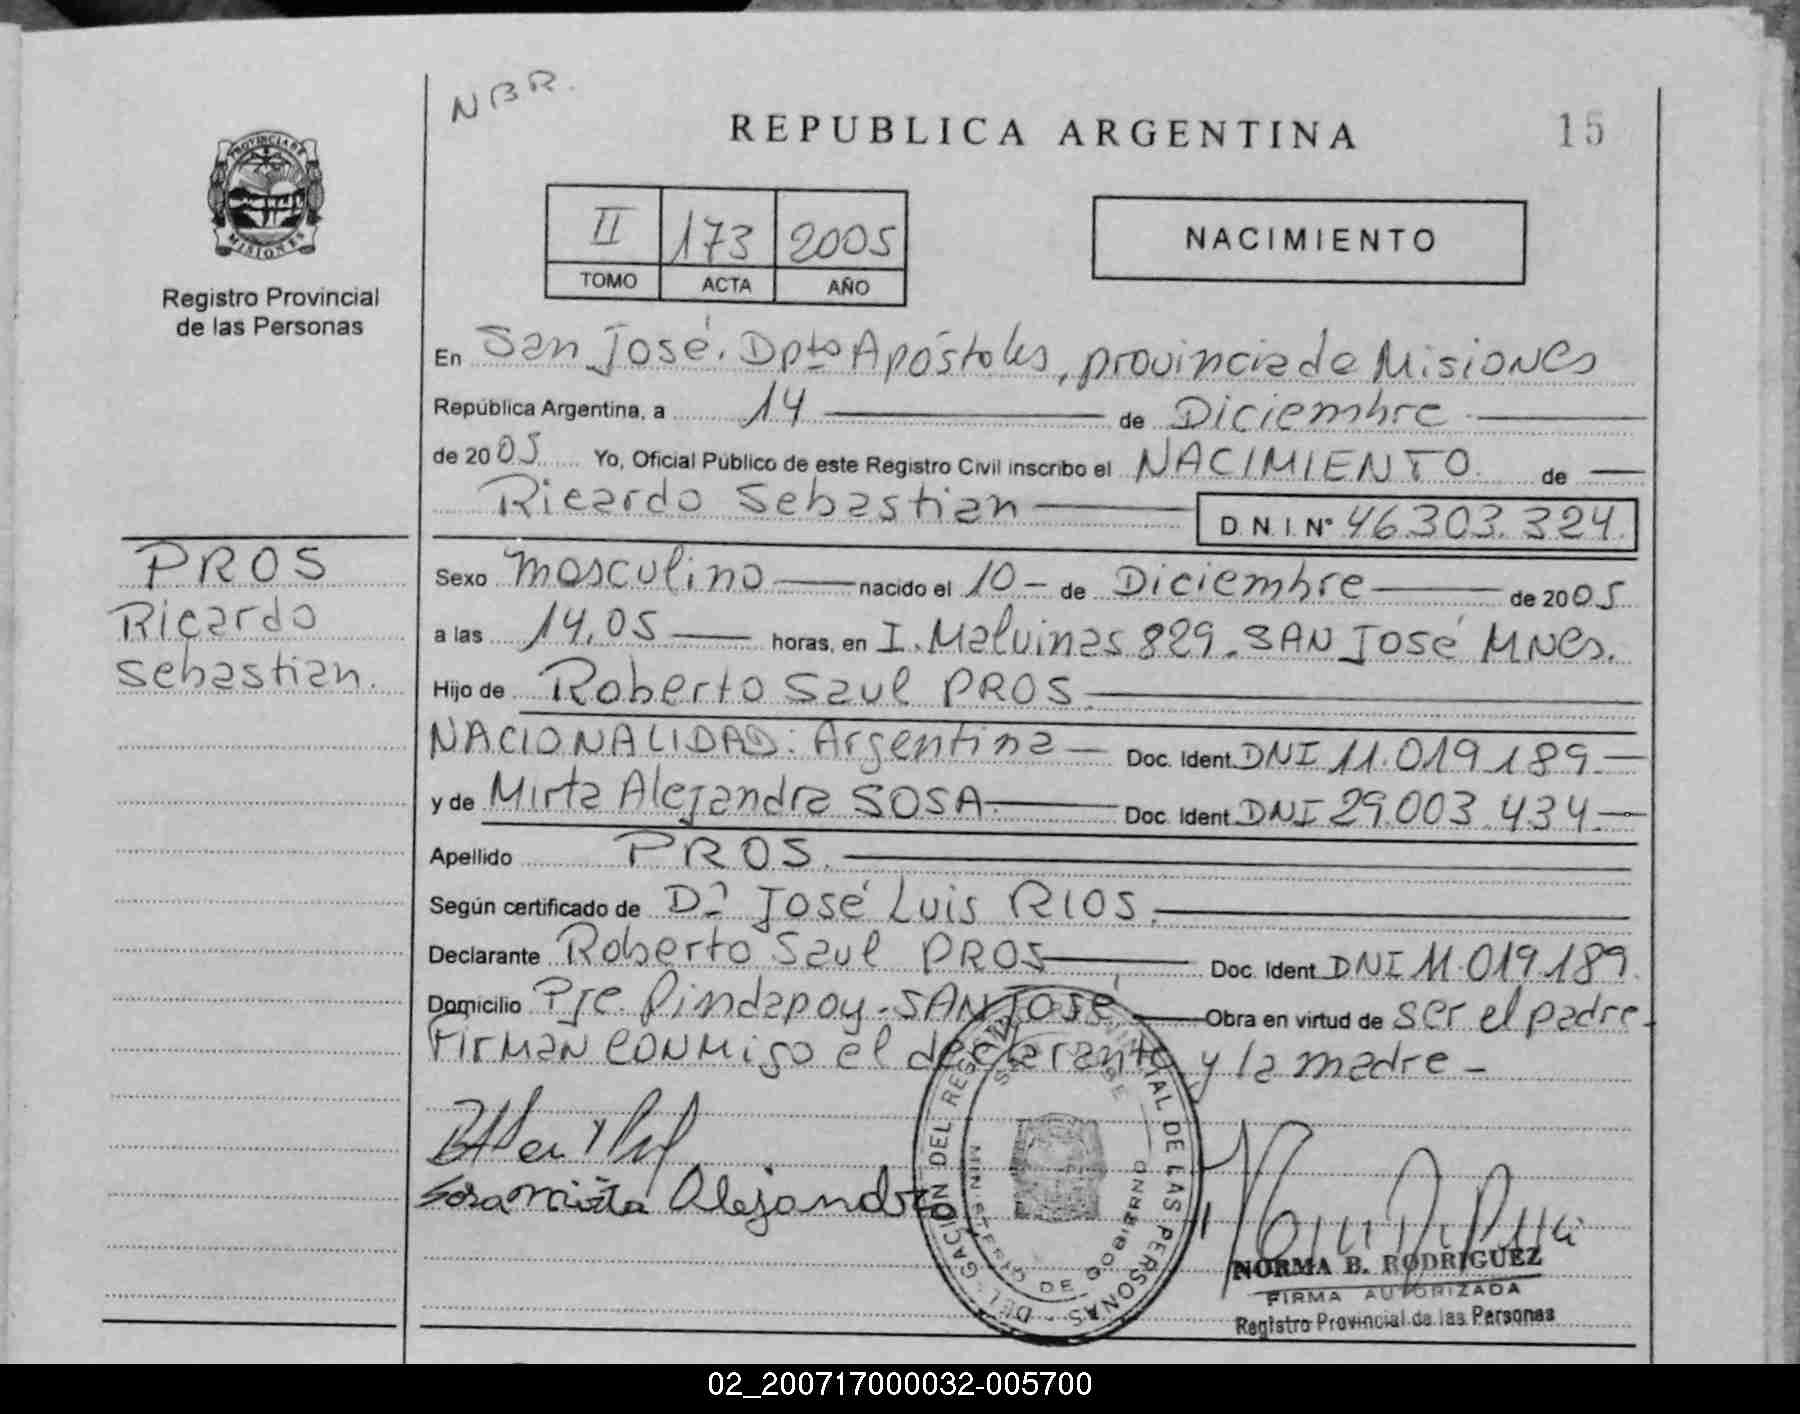 NBR.
REPUBLICA ARGENTINA
15
PROVINCIA DE
MISIONES
Registro Provincial
de las Personas
II 173 2005
TOMO ACTA AÑO
NACIMIENTO
En San José. Dpto Apóstoles, provincia de Misiones
República Argentina, a 14 de Diciembre
de 2005 Yo, Oficial Público de este Registro Civil inscribo el NACIMIENTO. de
Ricardo Sebastian D.N.I. N° 46.303.324.
PROS
Ricardo
Sebastian.
Sexo masculino nacido el 10 - de Diciembre de 2005
a las 14.05 horas, en I. Malvinas 829. SAN José MNes.
Hijo de Roberto Saul PROS.
NACIONALIDAD: Argentina - Doc. Ident. DNI 11.019.189.-
y de Mirta Alejandra SOSA Doc. Ident. DNI 29.003.434.-
Apellido PROS.
Según certificado de Dr José Luis RIOS.
Declarante Roberto Saul PROS Doc. Ident. DNI 11.019.189.
Domicilio Pje. Pindapoy - SAN José Obra en virtud de ser el padre.
Firman conmigo el declarante y la madre -
Sosa Mirta Alejandra
DEL REGISTRO PROVINCIAL DE LAS PERSONAS
MINISTERIO DE GOBIERNO
NORMA B. RODRIGUEZ
FIRMA AUTORIZADA
Registro Provincial de las Personas
02_200717000032-005700